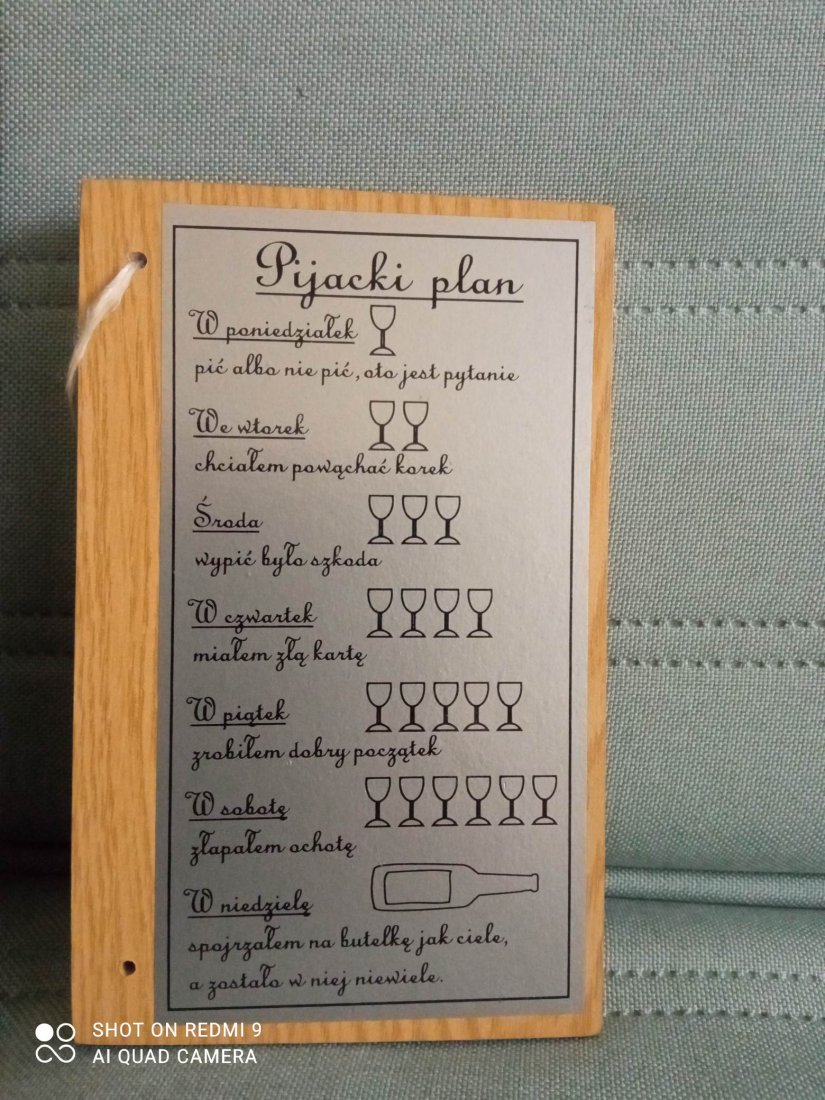 Pijacki plan
W poniedziałek
pić albo nie pić, oto jest pytanie
We wtorek
chciałem powąchać korek
Środa
wypić było szkoda
W czwartek
miałem złą kartę
W piątek
zrobiłem dobry początek
W sobotę
złapałem ochotę
W niedzielę
spojrzałem na butelkę jak ciele,
a zostało w niej niewiele.
SHOT ON REDMI 9
AI QUAD CAMERA